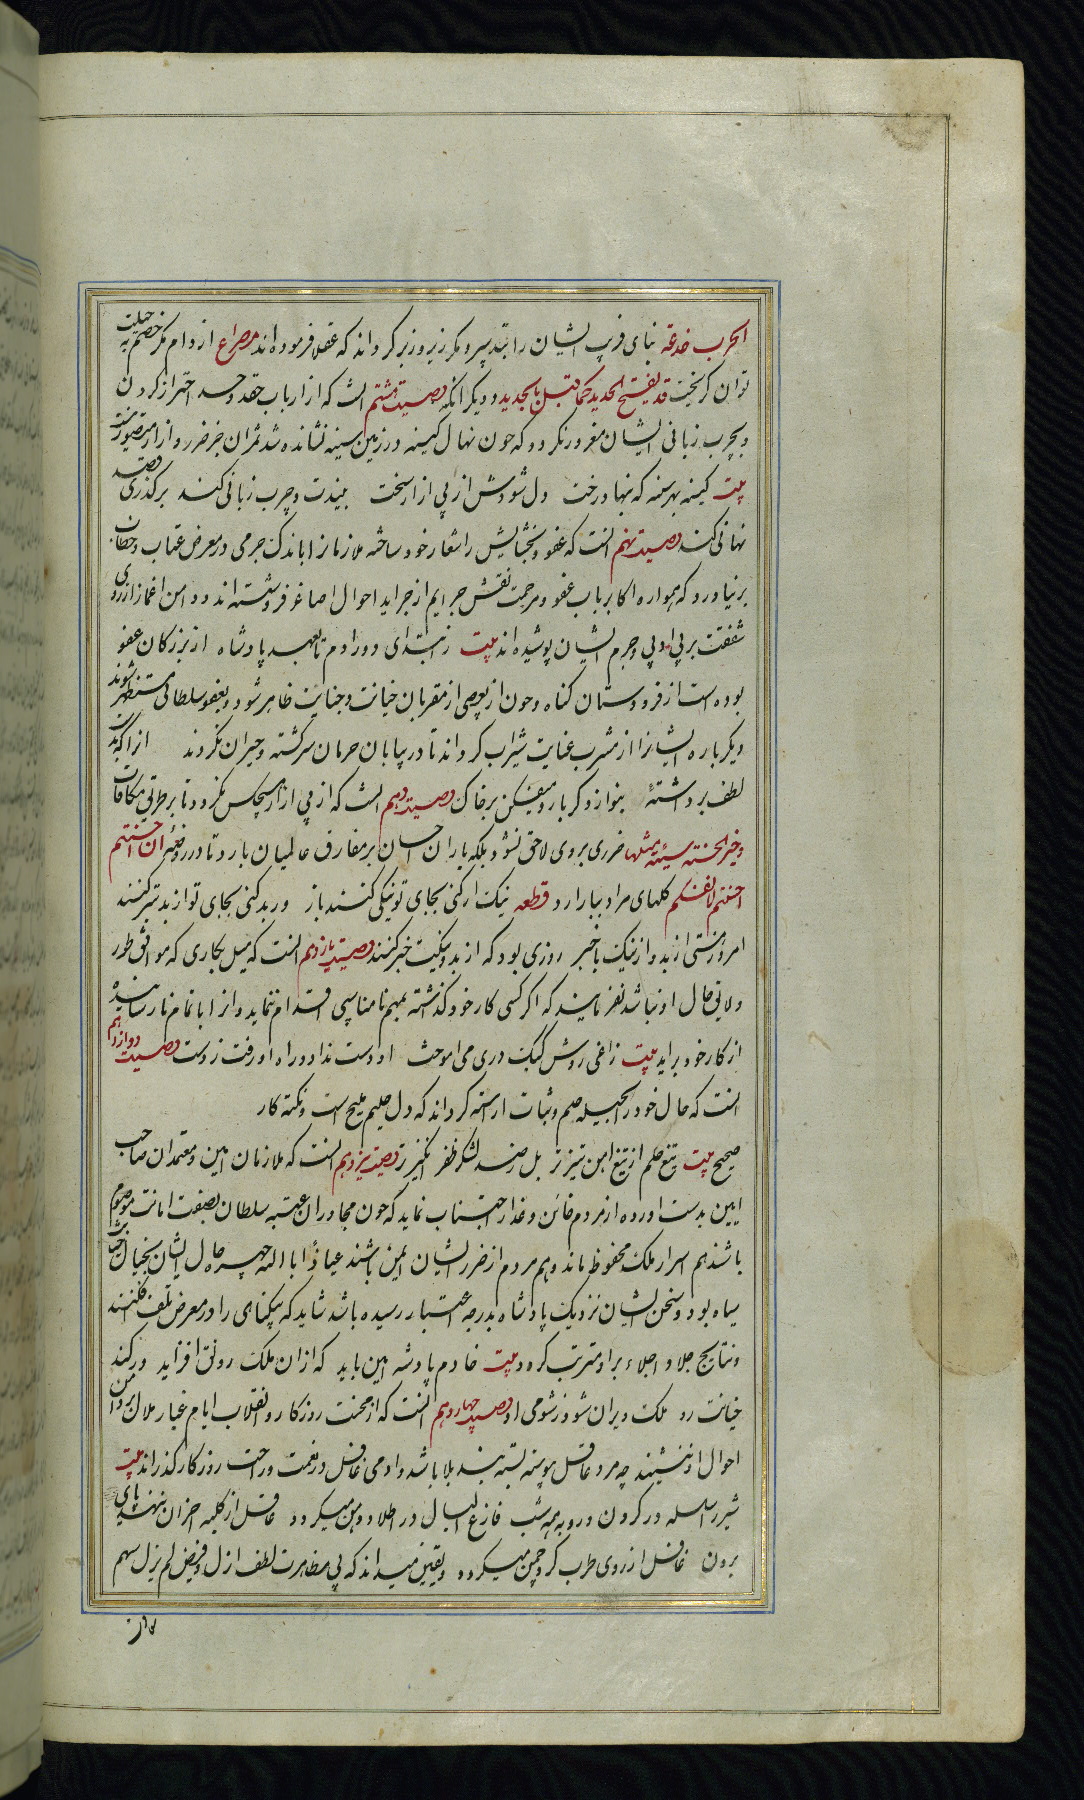 الحرب خدعة بنای فریب ایشان را بتدبیر و مکر زیر و زبر گرداند که عقلا فرموده‌اند مصراع از دام مکر خصم به حیلت
توان گریخت قد یفتح الحدید کما قیل بالحدید و دیگر آنکه وصیت هشتم آنست که از ارباب حقد و حسد احتراز کردن
و بچرب زبانی ایشان مغرور نگردد که چون نهال کینه در زمین سینه نشانده شد ثمر آن جز ضرر و آزار متصور نیست
بیت کینه بهر سینه که بنهاد رخت دل شودش از پی آزار سخت بیندت و چرب زبانی کند برگذری قصد
نهانی کند وصیت نهم آنست که عفو و بخشایش را شعار خود ساخته ملازمان را باندک جرمی در معرض عتاب و خطاب
برنیاورد که همواره اکابر بآب عفو و مرحمت نقش جرایم از جراید احوال اصاغر فروشسته‌اند و دامن اغماز از روی
شفقت بر بی ادبی و جرم ایشان پوشیده‌اند بیت ز ابتدای دور آدم تا بعهد پادشاه از بزرگان عفو
بوده است از فرودستان گناه و چون از بعضی از مقربان خیانت و جنایت ظاهر شود و بعفو سلطانی مستظهر شوند
دیگر باره ایشانرا از مشرب عنایت سیراب گرداند تا در بیابان حرمان سرگشته و حیران نگردند آنرا که بدست
لطف برداشتهٔ بنواز و کرباره میفکن بر خاک وصیت دهم آنست که از پی آزار هیچکس نگردد تا بر طریق مکافات
و جزاء سیئة سیئة مثلها ضرری بروی لاحق نشود بلکه باران احسان بر مفارق عالمیان بارد تا در روضهٔ ان احسنتم
احسنتم لانفسکم گلهای مراد ببار آرد قطعه نیک ار کنی بجای تو نیکی کنند باز ور بد کنی بجای تو از بد بتر کنند
امروز هستی از بد و از نیک بی‌خبر روزی بود که از بد و نیکیت خبر کنند وصیت یازدهم آنست که میل بکاری که موافق طور
و لایق حال او نباشد نفرمایند که اگر کسی کار خود گذشته بمهم نامناسبی اقدام نماید و آنرا باتمام نارسانیده
از کار خود برآید بیت زاغی روش کبک دری می‌آموخت او دست نداد و راه او رفت ز دست وصیت دوازدهم
آنست که حال خود را بحیله حلم و ثبات آراسته گرداند که دل حلیم ملیح است و نکته کار
صحیح بیت تیغ حلم از تیغ آهن تیزتر بل ز صد لشکر ظفر انگیزتر وصیت سیزدهم آنست که ملازمان امین و معتمدان صاحب
یمین بدست آورده از مردم خائن و غدار اجتناب نماید که چون مجاوران عتبه سلطان بصفت امانت موصوم
باشند هم اسرار ملک محفوظ ماند و هم مردم از ضرر ایشان ایمن باشند عیاذا بالله چهره حال ایشان بخیال خیانت
سیاه بود و سخن ایشان نزدیک پادشاه بدرجه اعتبار رسیده باشد شاید که بیگناهی را در معرض تلف افکنند
و نتایج جلا و اجلاء بر او مترتب گردد بیت خادم پادشه امین باید که ازان ملک رونق افزاید ور کند
خیانت رو ملک ویران شود ز شومی او وصیت چهاردهم آنست که از محنت روزگار و انقلاب ایام غبار ملال بر دامن
احوال او ننشیند چه مرد عاقل پیوسته بسته بند بلا باشد و آدمی غافل در نعمت و راحت روزگار گذراند بیت
شیر را سلسله در گردن و روبه همه شب فارغ البال در اطلال و دمن میگردد عاقل از کلبه احزان ننهد پای
برون غافل از روی طرب گرد چمن میگردد و یقین میداند که بی مظاهرت لطف ازل و فیض لم یزل سهم